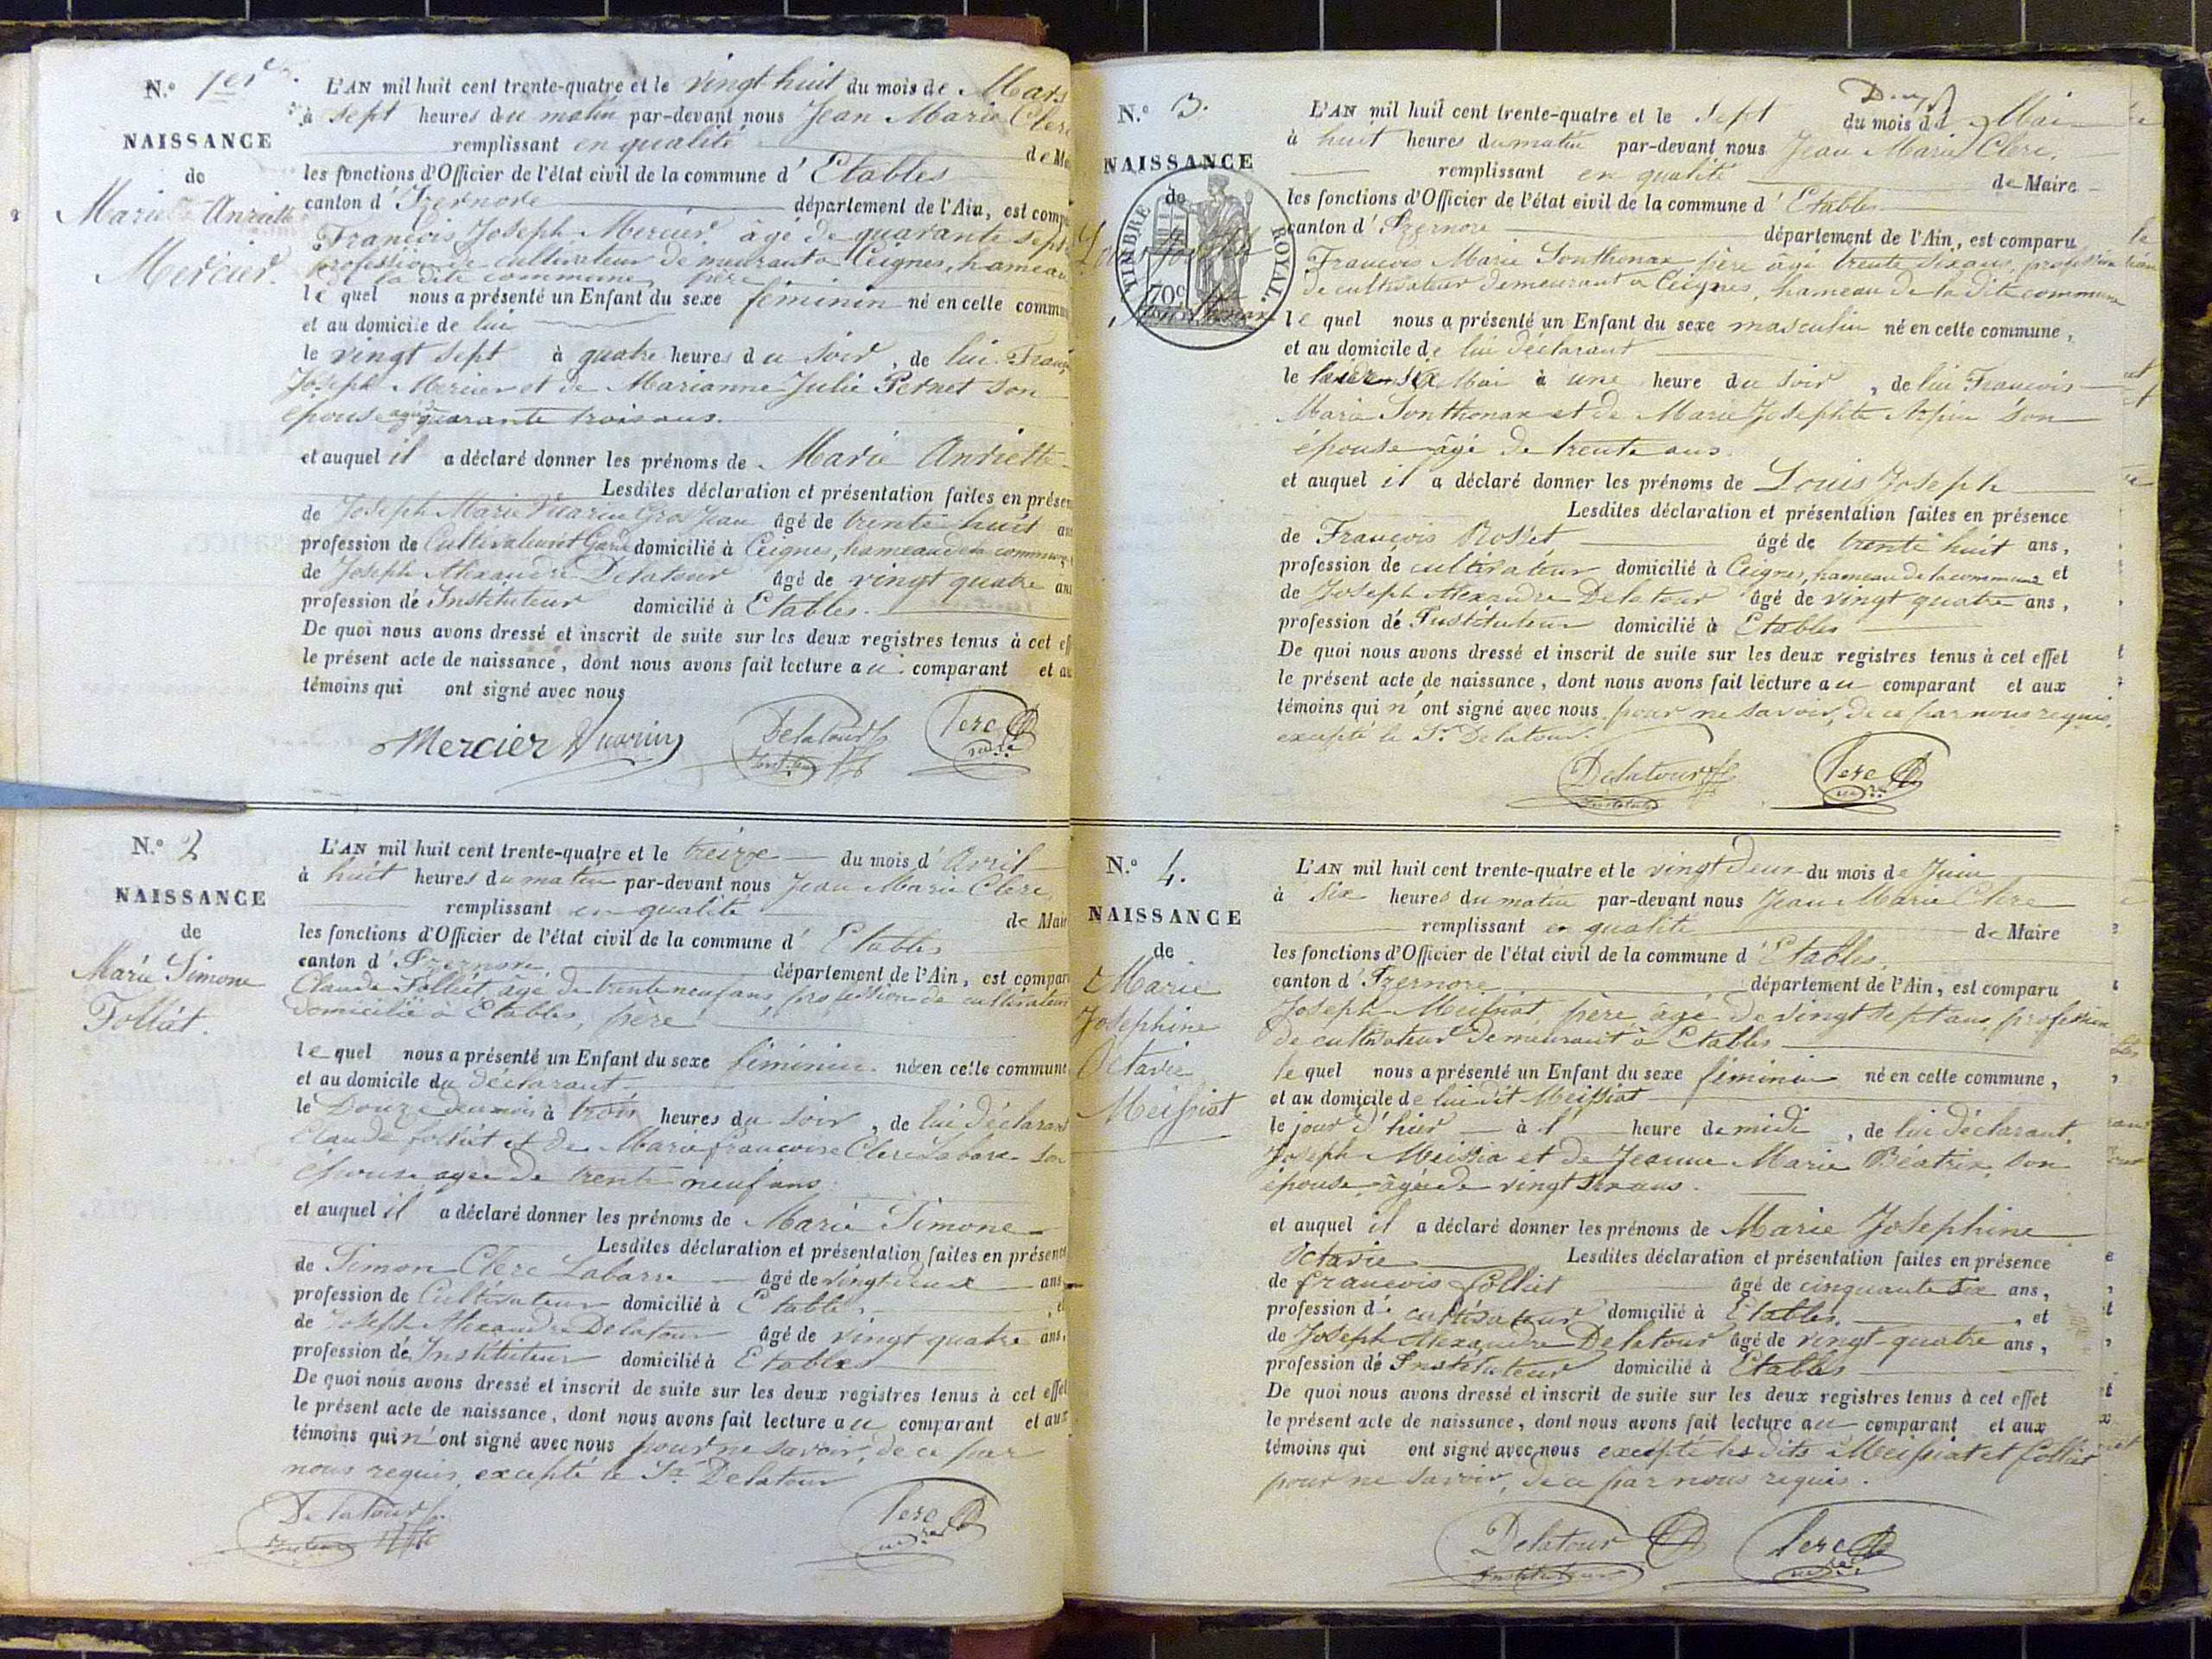 N.° 1er
NAISSANCE
de
Marie Anriette
Mercier.
L'AN mil huit cent trente-quatre et le vingt-huit du mois de Mars
à sept heures du matin par-devant nous Jean Marie Clerc
remplissant en qualité de Ma
les fonctions d'Officier de l'état civil de la commune d'Etables
canton d'Izernore département de l'Ain, est comp
François Joseph Mercier âgé de quarante sept
profession de cultivateur demeurant à Ceignes, hameau
de la dite commune, père
le quel nous a présenté un Enfant du sexe féminin né en cette commu
et au domicile de lui
le vingt sept à quatre heures du soir, de lui Franç
Joseph Mercier et de Marianne Julie Pernet son
épouse agée quarante trois ans.
et auquel il a déclaré donner les prénoms de Marie Anriette
Lesdites déclaration et présentation faites en présen
de Joseph Marie âgé de trente huit an
profession de Cultivateur domicilié à Ceignes, hameau de la commune
de Joseph Alexandre Delatour âgé de vingt quatre ans
profession de Instituteur domicilié à Etables.
De quoi nous avons dressé et inscrit de suite sur les deux registres tenus à cet eff
le présent acte de naissance, dont nous avons fait lecture au comparant et au
témoins qui ont signé avec nous
Mercier Delatour Clerc
N.° 2
NAISSANCE
de
Marie Simone
Folliét.
L'AN mil huit cent trente-quatre et le treize du mois d'Avril
à huit heures du matin par-devant nous Jean Marie Clerc,
remplissant en qualité de Mair
les fonctions d'Officier de l'état civil de la commune d'Etables
canton d'Izernore département de l'Ain, est compar
Claude Folliét, âgé de trente neuf ans, profession de cultivateur
domicilié à Etables, père
le quel nous a présenté un Enfant du sexe féminin né en cette commune
et au domicile du déclarant
le Douze à trois heures du soir, de lui déclarant
Claude folliét et de Marie françoise Clerc Labare son
épouse agée de trente neuf ans.
et auquel il a déclaré donner les prénoms de Marie Simone
Lesdites déclaration et présentation faites en présence
de Simon Clerc Labarre âgé de vingt deux ans
profession de Cultivateur domicilié à Etables
de Joseph Alexandre Delatour âgé de vingt quatre ans,
profession de Instituteur domicilié à Etables
De quoi nous avons dressé et inscrit de suite sur les deux registres tenus à cet effet
le présent acte de naissance, dont nous avons fait lecture au comparant et aux
témoins qui n'ont signé avec nous pour ne savoir, de ce par
nous requis, excepté le Sr. Delatour
Delatour Clerc
N.° 3.
NAISSANCE
de
TIMBRE ROYAL.
70c
L'AN mil huit cent trente-quatre et le sept du mois de Mai
à huit heures du matin par-devant nous Jean Marie Clerc.
remplissant en qualité de Maire
les fonctions d'Officier de l'état civil de la commune d'Etables
canton d'Izernore département de l'Ain, est comparu
François Marie Sonthonax père âgé trente six ans, profession
de cultivateur demeurant à Ceignes, hameau de la dite commune
le quel nous a présenté un Enfant du sexe masculin né en cette commune,
et au domicile de lui déclarant
le six Mai à une heure du soir, de lui François
Marie Sonthonax et de Marie Josephte Arpin son
épouse âgé de trente ans.
et auquel il a déclaré donner les prénoms de Louis Joseph
Lesdites déclaration et présentation faites en présence
de François Rosset âgé de trente huit ans,
profession de cultivateur domicilié à Ceignes, hameau de la commune et
de Joseph Alexandre Delatour âgé de vingt quatre ans,
profession de Instituteur domicilié à Etables
De quoi nous avons dressé et inscrit de suite sur les deux registres tenus à cet effet
le présent acte de naissance, dont nous avons fait lecture au comparant et aux
témoins qui n'ont signé avec nous pour ne savoir, de ce par nous requis,
excepté le Sr. Delatour.
Delatour Clerc
N.° 4.
NAISSANCE
de
Marie
Josephine
Octavie
Meissiat
L'AN mil huit cent trente-quatre et le vingt deux du mois de Juin
à six heures du matin par-devant nous Jean Marie Clerc
remplissant en qualité de Maire
les fonctions d'Officier de l'état civil de la commune d'Etables,
canton d'Izernore département de l'Ain, est comparu
Joseph Meissiat, père, âgé de vingt sept ans, profession
de cultivateur demeurant à Etables
le quel nous a présenté un Enfant du sexe féminin né en cette commune,
et au domicile de lui dit Meissiat
le jour d'hier à l'heure de midi, de lui déclarant,
Joseph Meissia et de Jeanne Marie Béatrix son
épouse, âgée de vingt six ans.
et auquel il a déclaré donner les prénoms de Marie Josephine
Octavie Lesdites déclaration et présentation faites en présence
de françois folliet âgé de cinquante six ans,
profession de cultivateur domicilié à Etables, et
de Joseph Alexandre Delatour âgé de vingt-quatre ans,
profession de Instituteur domicilié à Etables
De quoi nous avons dressé et inscrit de suite sur les deux registres tenus à cet effet
le présent acte de naissance, dont nous avons fait lecture au comparant et aux
témoins qui ont signé avec nous excepté les dits Meissiat et folliet
pour ne savoir, de ce par nous requis.
Delatour Clerc
Instituteur